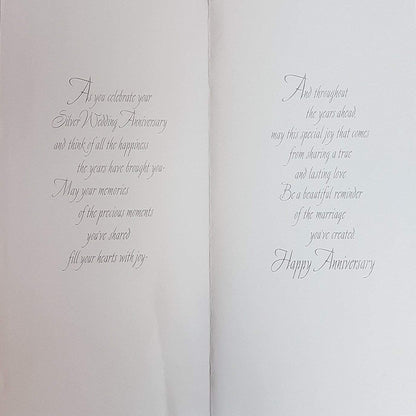 As you celebrate your
Silver Wedding Anniversary
and think of all the happiness
the years have brought you-
May your memories
of the precious moments
you've shared
fill your hearts with joy-
And throughout
the years ahead,
may this special joy that comes
from sharing a true
and lasting love
Be a beautiful reminder
of the marriage
you've created.
Happy Anniversary